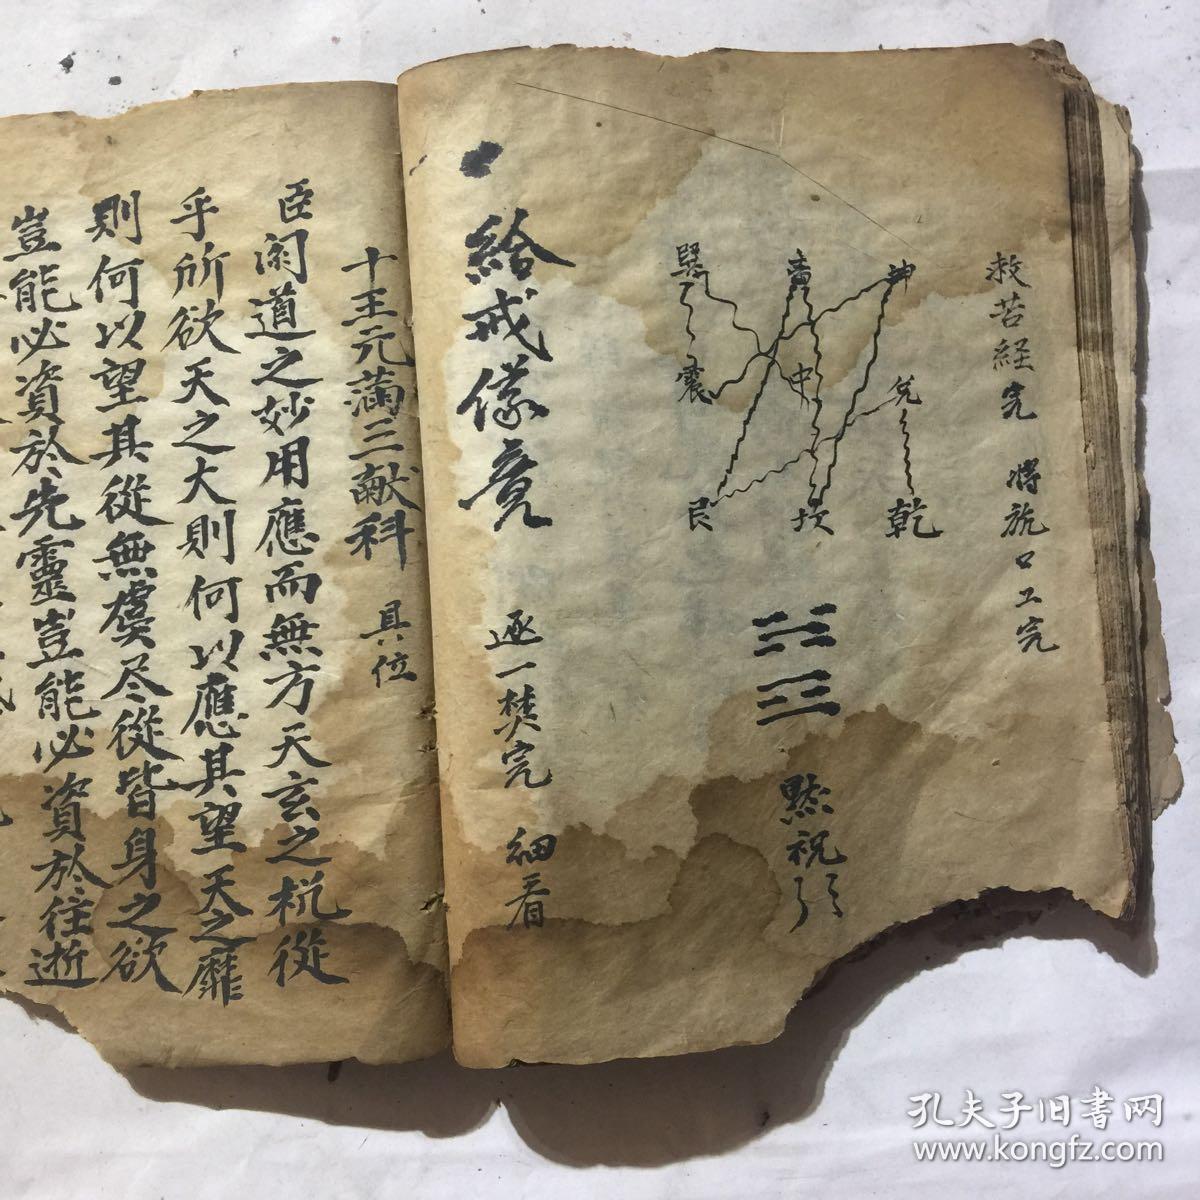 救苦経完 將旒口工完
坤 离 巽
兌 中 震
乾 坎 艮
默祝
給戒儀竟 逐一焚完 細看
十王元滿三献科 具位
臣闻道之妙用應而無方天玄之棁從
乎所欲天之大則何以應其望天之靡
則何以望其從無虞尽從皆身之欲
豈能必資於先靈豈能必資於往逝
孔夫子旧书网
www.kongfz.com